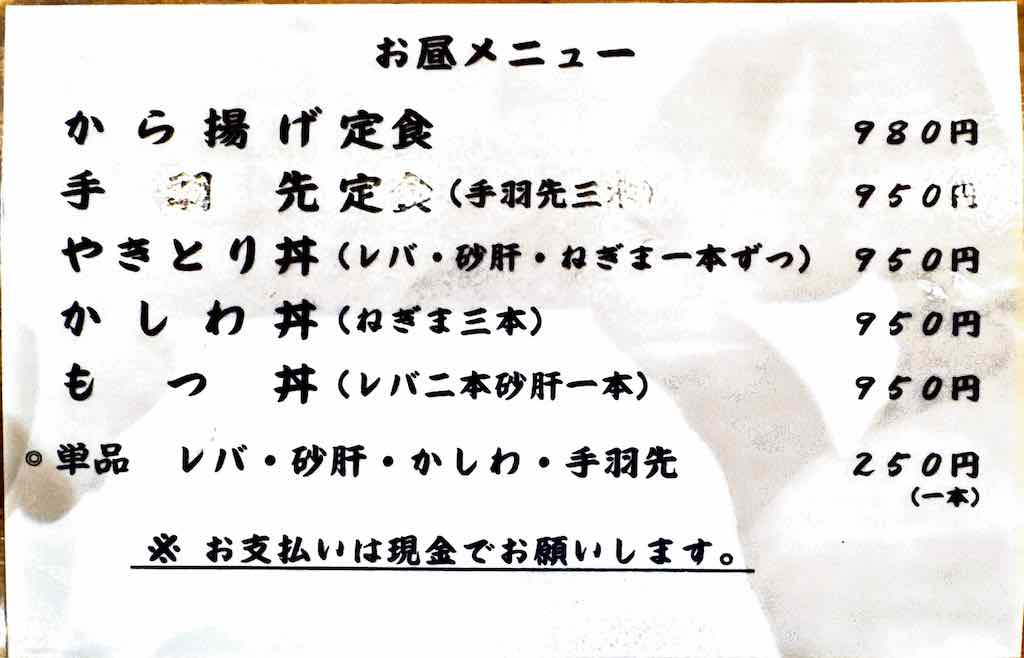 お昼メニュー
から揚げ定食 980円
手羽先定食(手羽先三本) 950円
やきとり丼(レバ・砂肝・ねぎま一本ずつ) 950円
かしわ丼(ねぎま三本) 950円
もつ丼(レバ二本砂肝一本) 950円
◎単品 レバ・砂肝・かしわ・手羽先 250円
(一本)
※ お支払いは現金でお願いします。